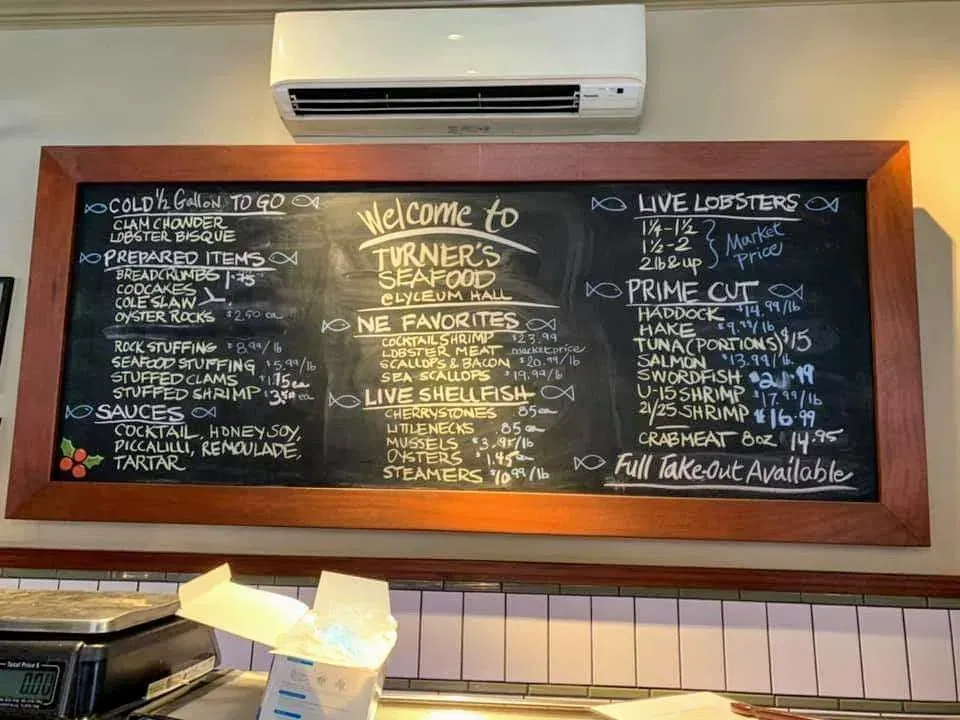 COLD 1/2 Gallon TO GO
CLAM CHONDER
LOBSTER BISQUE
PREPARED ITEMS
BREADCRUMBS 1.75
CODCAKES
COLESLAW
OYSTER ROCKS $2.50 ea
ROCK STUFFING $8.99/lb
SEAFOOD STUFFING $5.99/lb
STUFFED CLAMS $1.75 ea
STUFFED SHRIMP ea
SAUCES
COCKTAIL, HONEY SOY,
PICCALILLI, REMOULADE,
TARTAR
Welcome to
TURNER'S
SEAFOOD
@LYCEUM HALL
NE FAVORITES
COCKTAIL SHRIMP $23.99
LOBSTER MEAT market price
SCALLOPS & BACON $20.99/lb
SEA SCALLOPS $19.99/lb
LIVE SHELLFISH
CHERRYSTONES .85 ea
LITTLENECKS .85 ea
MUSSELS $3.95/lb
OYSTERS $1.45 ea
STEAMERS $10.99/lb
LIVE LOBSTERS
1 1/4 - 1 1/2
1 1/2 - 2
2 lb & up
Market
price
PRIME CUT
HADDOCK $14.99/lb
HAKE $9.99/lb
TUNA (PORTIONS) $15
SALMON $13.99/lb
SWORDFISH $21.99
U-15 SHRIMP $17.99/lb
21/25 SHRIMP $16.99
CRABMEAT 8oz 14.95
Full Take-Out Available
Total Price $
0.00